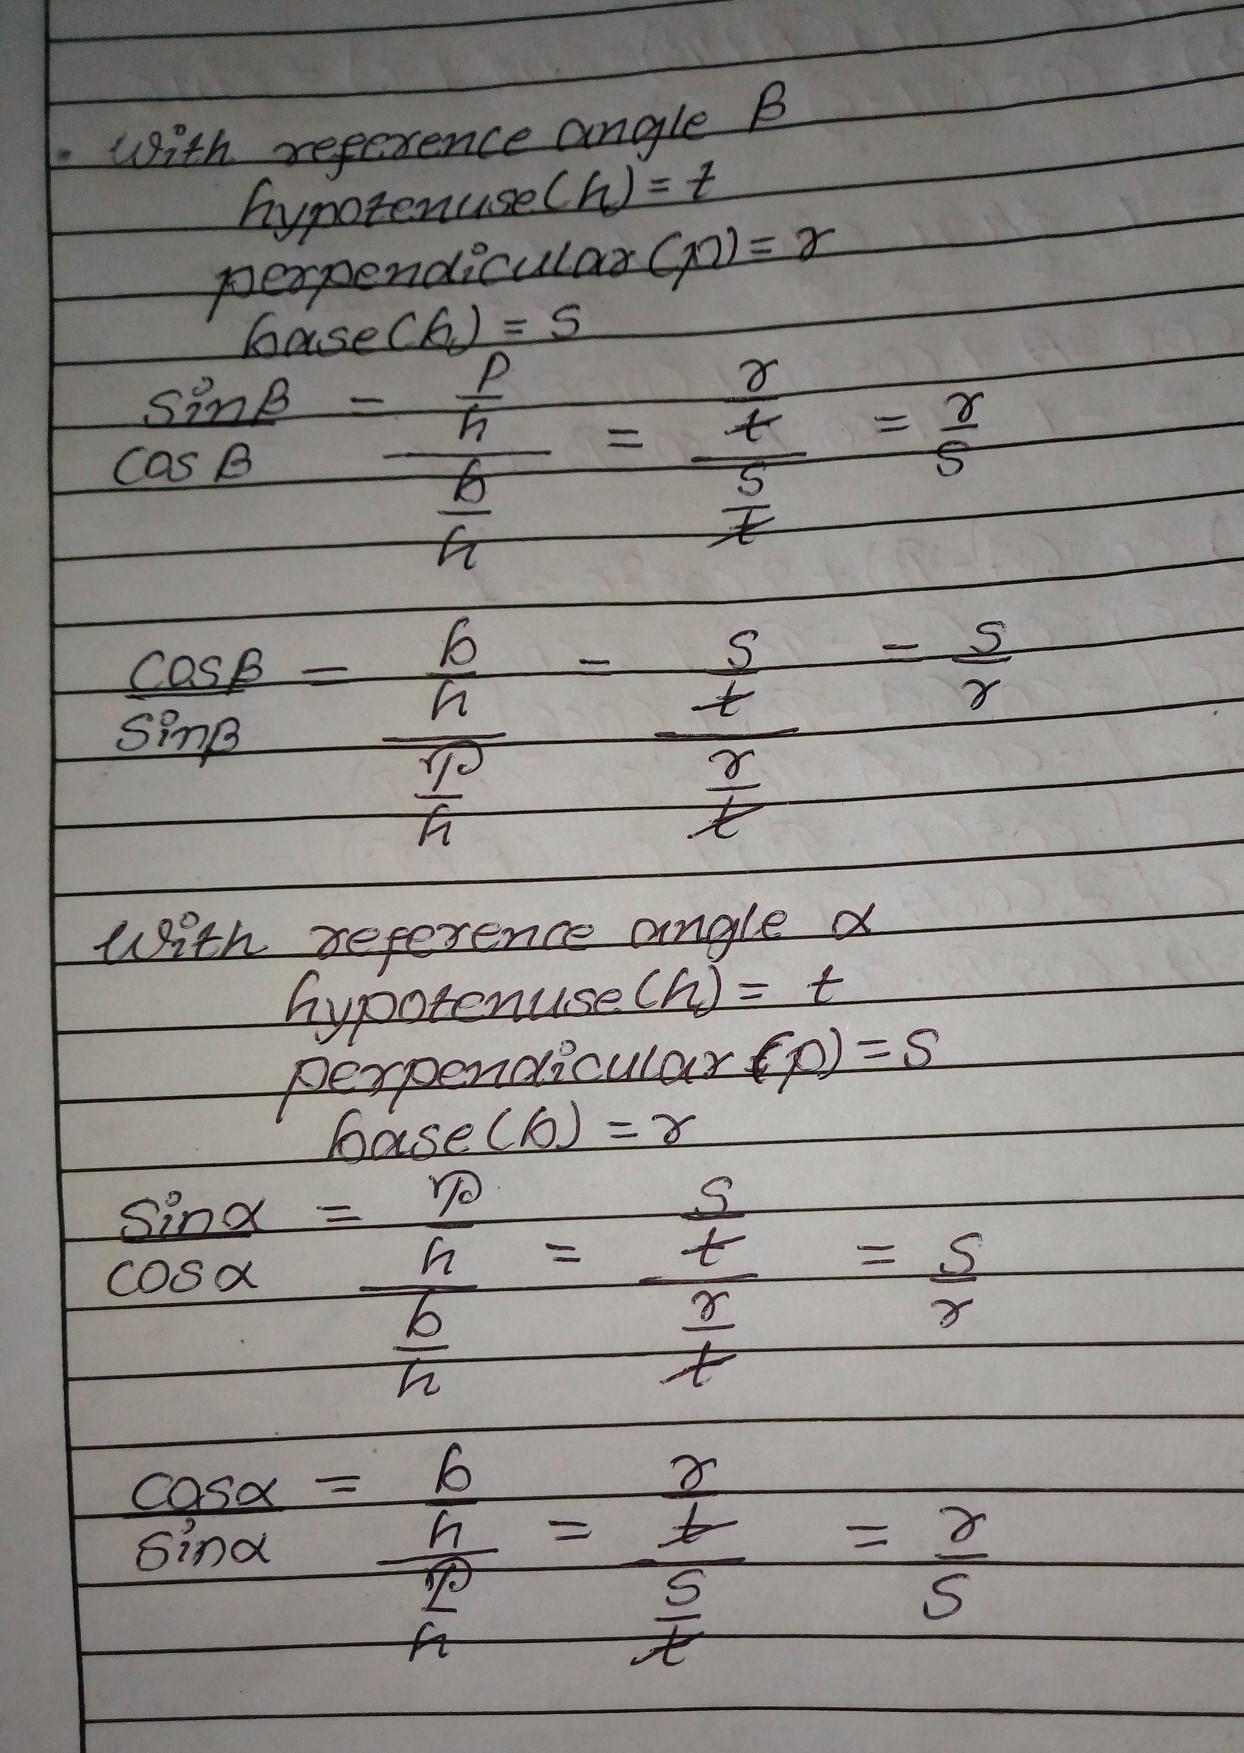 With reference angle β
hypotenuse(h) = t
perpendicular(p) = r
base(b) = s
sinβ/cosβ = (p/h)/(b/h) = (r/t)/(s/t) = r/s
cosβ/sinβ = (b/h)/(p/h) = (s/t)/(r/t) = s/r
With reference angle α
hypotenuse(h) = t
perpendicular(p) = s
base(b) = r
sinα/cosα = (p/h)/(b/h) = (s/t)/(r/t) = s/r
cosα/sinα = (b/h)/(p/h) = (r/t)/(s/t) = r/s